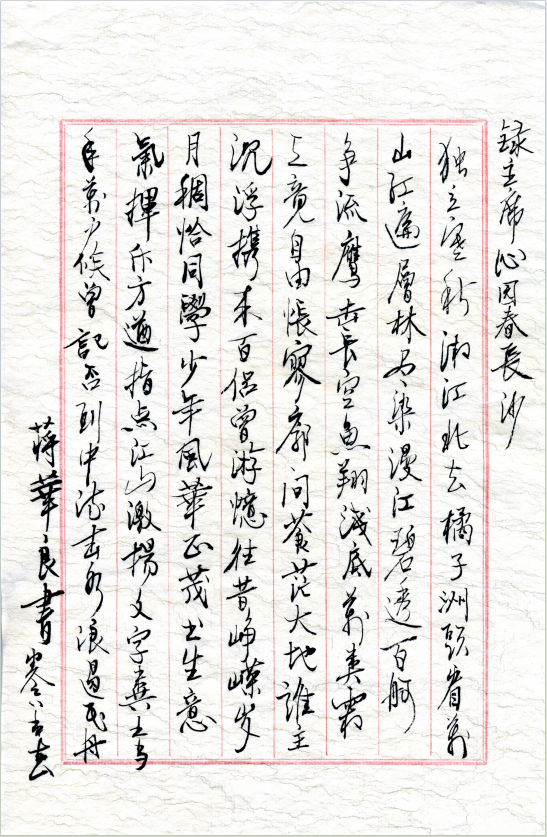 録主席沁园春長沙
独立寒秋湘江北去橘子洲頭看萬
山红遍層林尽染漫江碧透百舸
争流鹰击長空魚翔浅底萬类霜
天竟自由悵寥廓问蒼茫大地誰主
沉浮携来百侣曾游憶往昔峥嵘岁
月稠恰同學少年風華正茂书生意
氣揮斥方遒指点江山激揚文字粪土当
年萬户侯曾記否到中流击水浪遏飞舟
蒋華良書